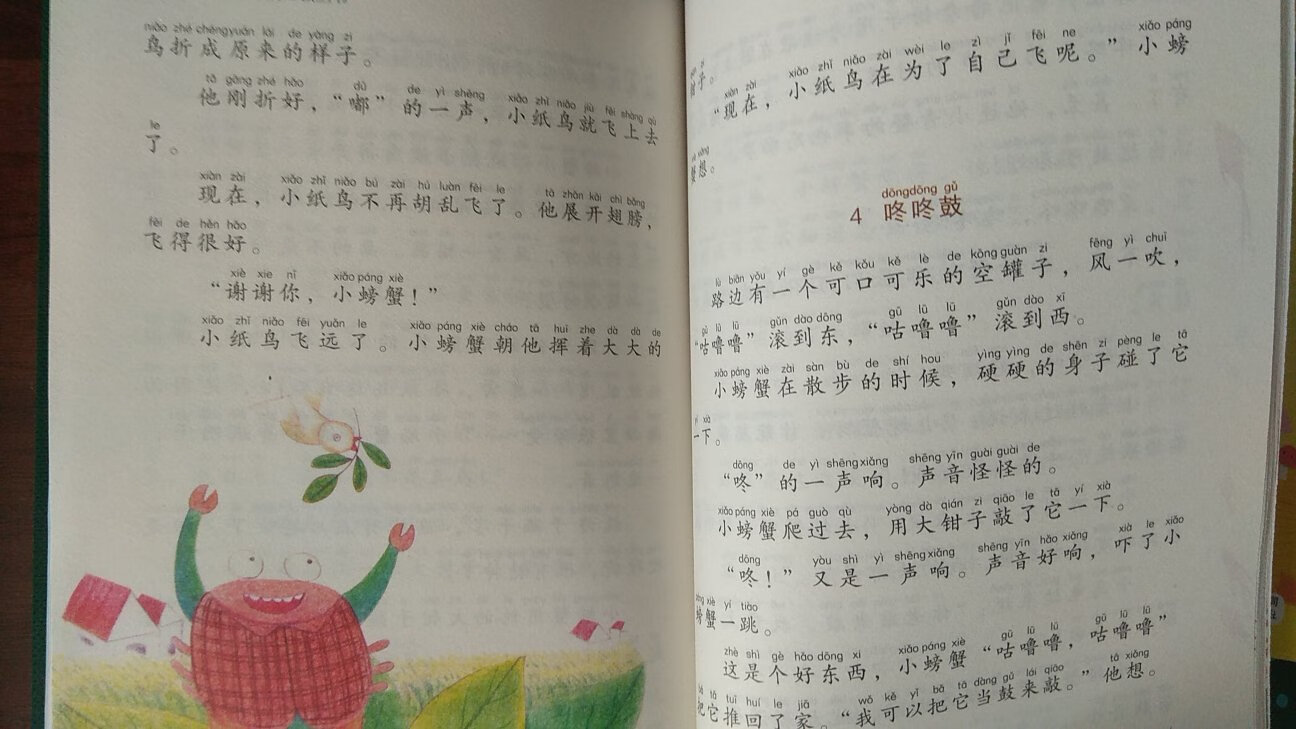 niǎo zhé chéng yuán lái de yàng zi
鸟折成原来的样子。
tā gāng zhé hǎo dū de yì shēng xiǎo zhǐ niǎo jiù fēi shàng qù
他刚折好，“嘟”的一声，小纸鸟就飞上去
le
了。
xiàn zài xiǎo zhǐ niǎo bú zài hú luàn fēi le tā zhǎn kāi chì bǎng
现在，小纸鸟不再胡乱飞了。他展开翅膀，
fēi de hěn hǎo
飞得很好。
xiè xie nǐ xiǎo páng xiè
“谢谢你，小螃蟹！”
xiǎo zhǐ niǎo fēi yuǎn le xiǎo páng xiè cháo tā huī zhe dà dà de
小纸鸟飞远了。小螃蟹朝他挥着大大的
zi
子。
xiàn zài xiǎo zhǐ niǎo zài wèi le zì jǐ fēi ne xiǎo páng
“现在，小纸鸟在为了自己飞呢。”小螃
xiǎng
想。
dōng dōng gǔ
4 咚咚鼓
lù biān yǒu yí gè kě kǒu kě lè de kōng guàn zi fēng yì chuī
路边有一个可口可乐的空罐子，风一吹，
gū lū lū gǔn dào dōng gū lū lū gǔn dào xī
“咕噜噜”滚到东，“咕噜噜”滚到西。
xiǎo páng xiè zài sàn bù de shí hou yìng yìng de shēn zi pèng le tā
小螃蟹在散步的时候，硬硬的身子碰了它
yí xià
一下。
dōng de yì shēng xiǎng shēng yīn guài guài de
“咚”的一声响。声音怪怪的。
xiǎo páng xiè pá guò qù yòng dà qián zi qiāo le tā yí xià
小螃蟹爬过去，用大钳子敲了它一下。
dōng yòu shì yì shēng xiǎng shēng yīn hǎo xiǎng xià le xiǎo
“咚！”又是一声响。声音好响，吓了小
páng xiè yí tiào
螃蟹一跳。
zhè shì gè hǎo dōng xi xiǎo páng xiè gū lū lū gū lū lū
这是个好东西，小螃蟹“咕噜噜，咕噜噜”
bǎ tā tuī huí le jiā wǒ kě yǐ bǎ tā dàng gǔ lái qiāo tā xiǎng
把它推回了家。“我可以把它当鼓来敲。”他想。